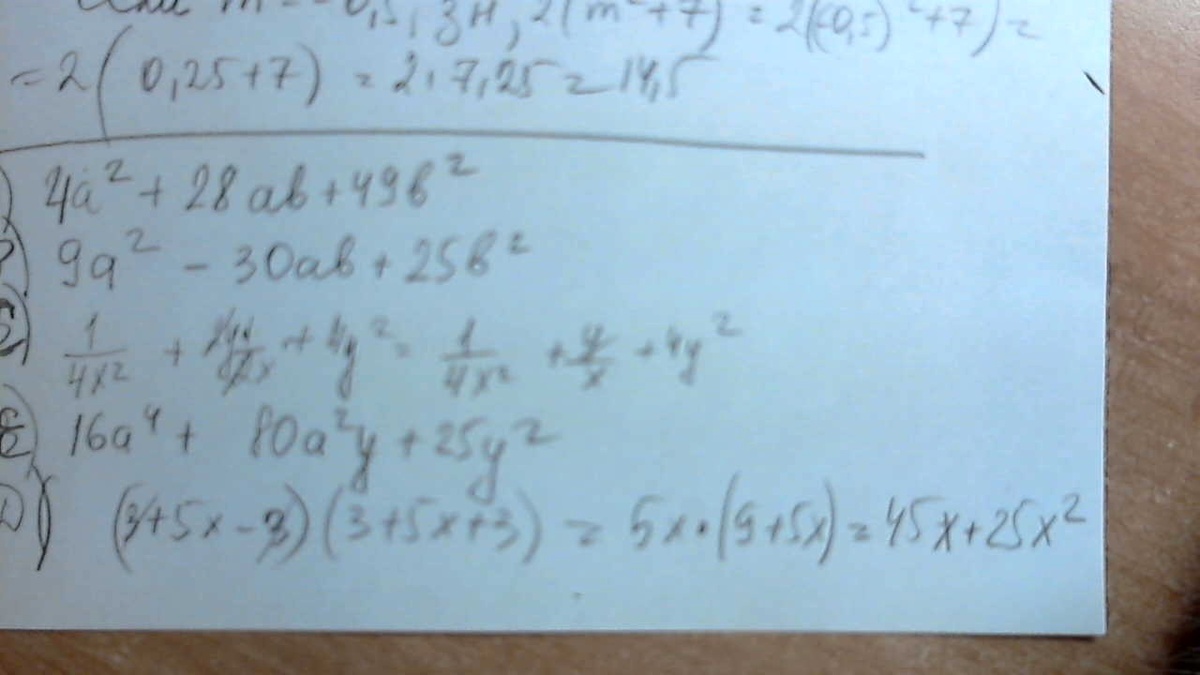 m = -0,5, зн, 2(m²+7) = 2((-0,5)²+7) =
= 2(0,25+7) = 2·7,25 = 14,5
4a² + 28ab + 49b²
9a² - 30ab + 25b²
1/4x² + + 4y² = 1/4x² + y/x + 4y²
16a⁴ + 80a²y + 25y²
д) (3+5x-3)(3+5x+3) = 5x·(9+5x) = 45x+25x²